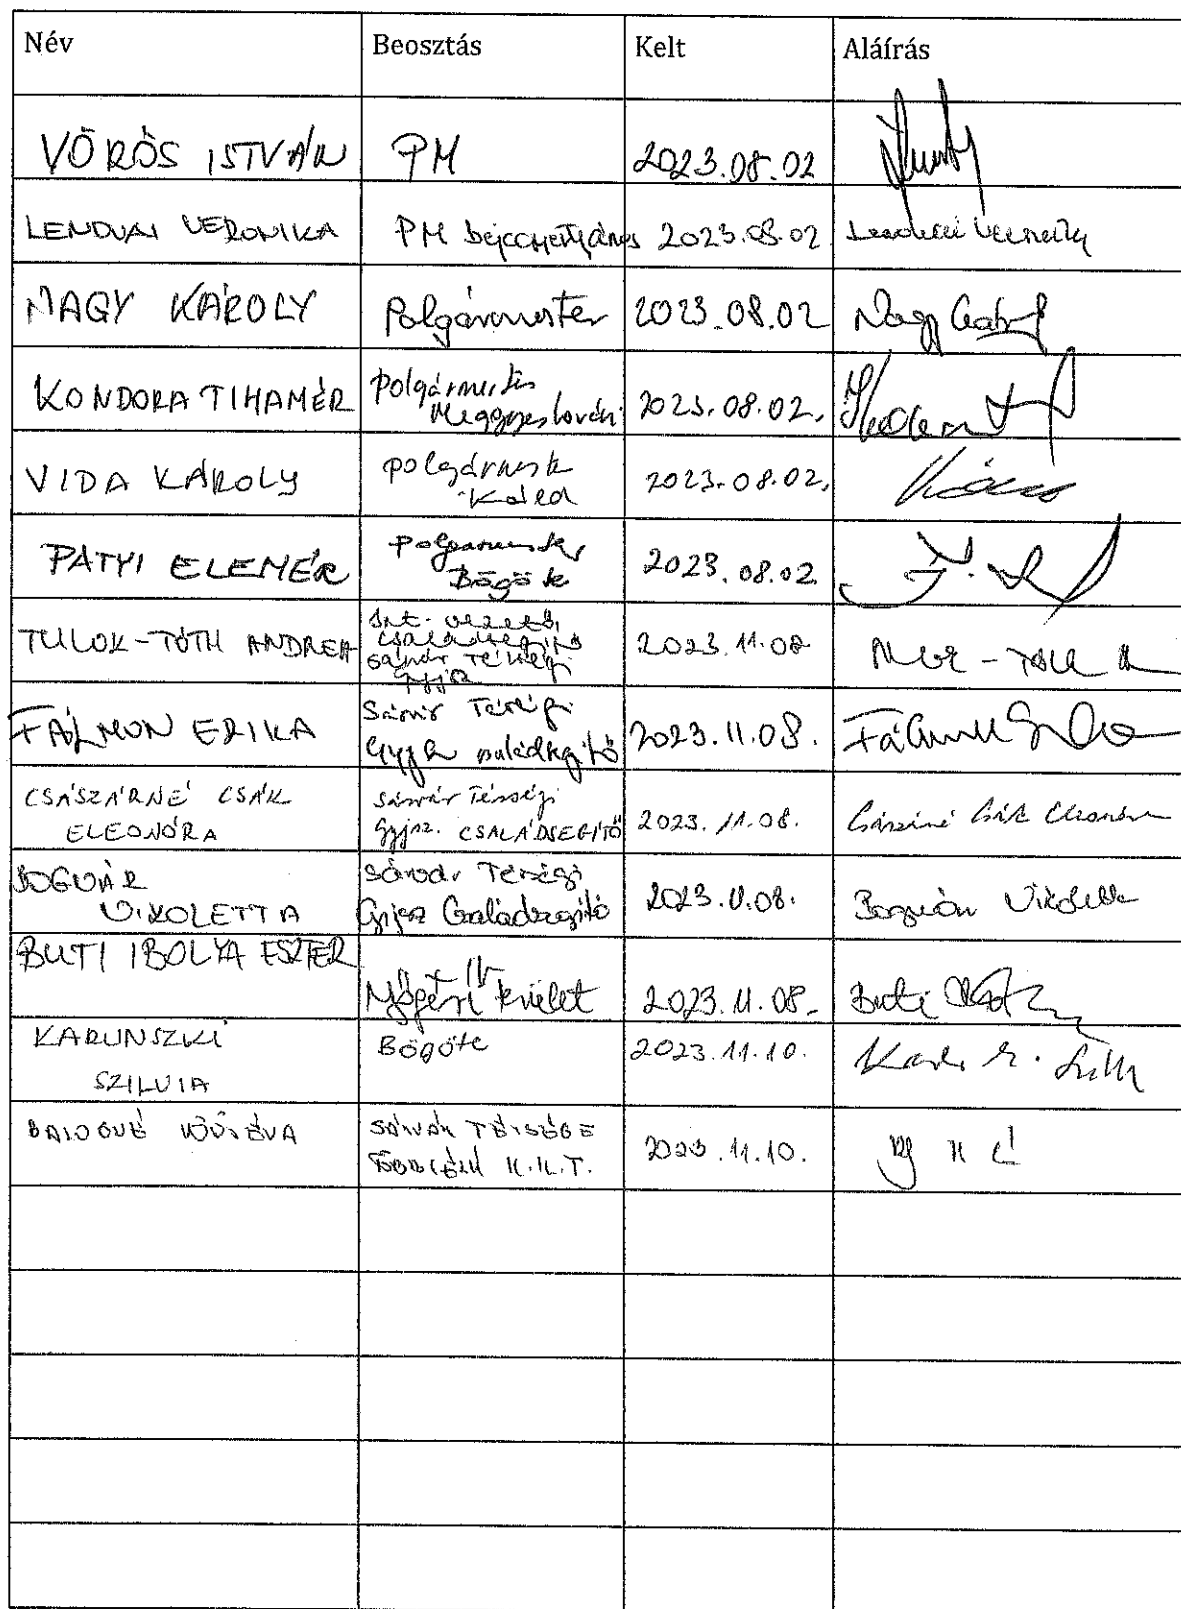 Név Beosztás Kelt Aláírás
VÖRÖS ISTVÁN PM 2023.08.02
LENDVAI VERONIKA PM bejcgyertyános 2023.08.02 Lendvai Veronika
NAGY KÁROLY Polgármester 2023.08.02 Nagy
KONDORA TIHAMÉR Polgármester
Meggyeskovácsi 2023.08.02.
VIDA KÁROLY polgármester
Káld 2023.08.02.
PATYI ELEMÉR polgármester
Bögöte 2023.08.02
TULOK-TÓTH ANDREA Int. vezető,
családsegítő
Sárvár Térségi
Gyjsz 2023.11.08
FÁLMON ERIKA Sárvár Térségi
családsegítő 2023.11.08.
CSÁSZÁRNÉ CSÁK
ELEONÓRA Sárvár Térségi
Gyjsz. CSALÁDSEGÍTŐ 2023.11.08. Császárné Csák Eleonóra
BOGNÁR
VIKOLETTA Sárvár Térségi
Gyjsz Családsegítő 2023.11.08. Bognár Vikoletta
BUTI IBOLYA ESZTER
2023.11.08. Buti
KARUNSZKI
SZILVIA Bögöte 2023.11.10.
BALOGNÉ ÉVA SÁRVÁR TÉRSÉGE
TÖBBCÉLÚ K.K.T. 2023.11.10.